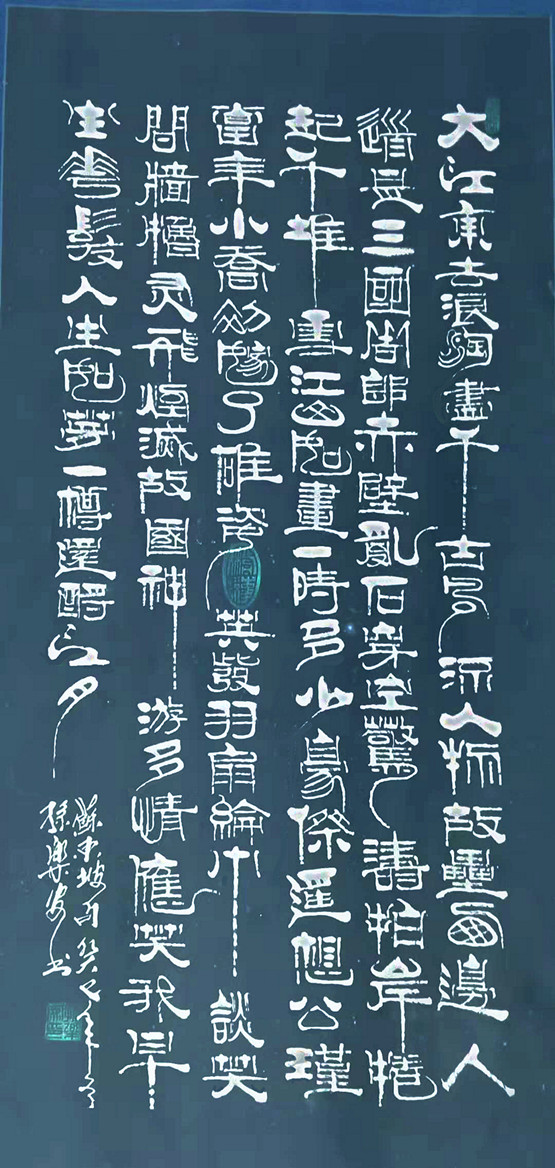 大江東去浪淘盡千古風流人物故壘西邊人
道是三國周郎赤壁亂石穿空驚濤拍岸捲
起千堆雪江山如畫一時多少豪傑遙想公瑾
當年小喬初嫁了雄姿英發羽扇綸巾談笑
間牆櫓灰飛煙滅故國神游多情應笑我早
生華髮人生如夢一樽還酹江月
蘇東坡句
书